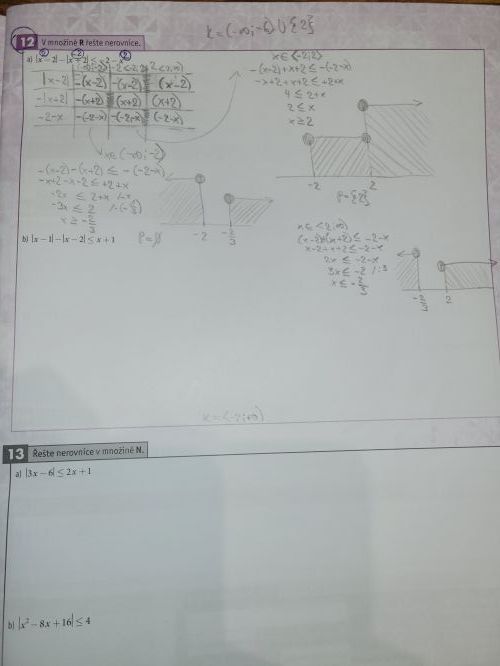 12 V množině R řešte nerovnice.
a) |x − 2| − |x + 2| ≤ −2 − x
|x-2| -(x-2) -(x-2) (x-2)
-|x+2| -(x+2) (x+2) (x+2)
-2-x -(-2-x) -(-2-x) (-2-x)
-(x-2)-(x+2) ≤ -(-2-x)
-x+2-x-2 ≤ +2+x
-2x ≤ 2+x /-x
x ≥ -2/3
P = ∅
-2
-2/3
x∈<-2;2)
-(x-2)+x+2 ≤ -(-2-x)
-x+2+x+2 ≤ +2+x
4 ≤ 2+x
2 ≤ x
x ≥ 2
-2
2
P={2}
x∈<2;∞)
(x-2)+(x+2) ≤ -2-x
x-2+x+2 ≤ -2-x
2x ≤ -2-x
3x ≤ -2 /:3
x ≤ -2/3
-2/3
2
b) |x − 1| − |x − 2| ≤ x + 1
13 Řešte nerovnice v množině N.
a) |3x − 6| ≤ 2x + 1
b) |x² − 8x + 16| ≤ 4